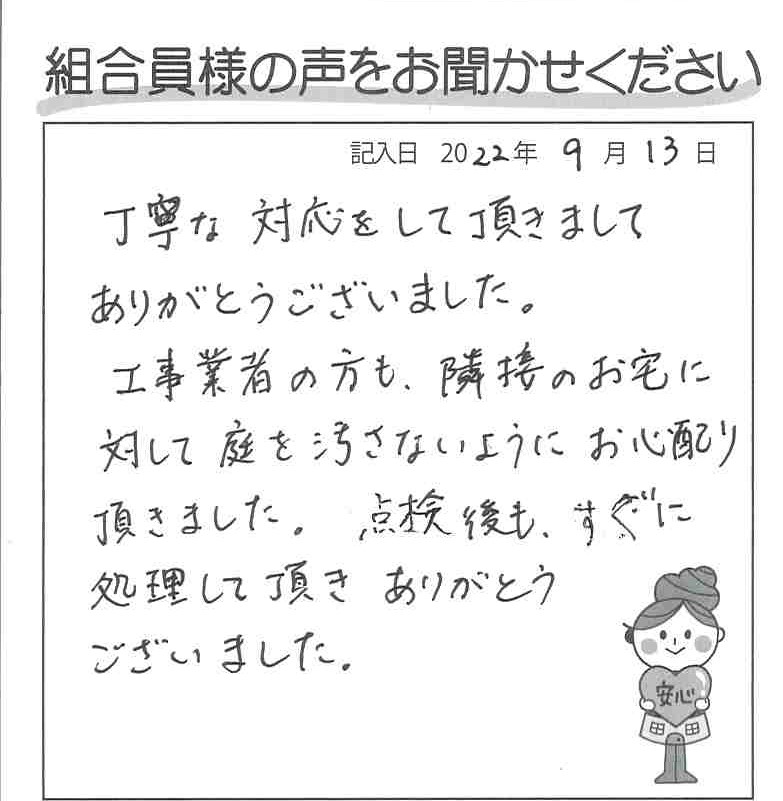 組合員様の声をお聞かせください
記入日 2022年 9月 13日
丁寧な対応をして頂きまして
ありがとうございました。
工事業者の方も、隣接のお宅に
対して庭を汚さないようにお心配り
頂きました。点検後も、すぐに
処理して頂きありがとう
ございました。
安心